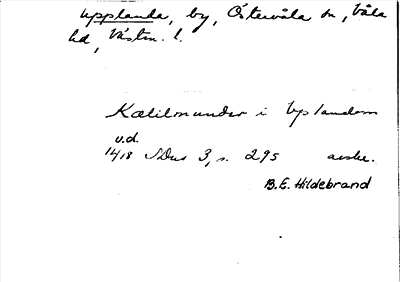 Upplanda, by, Östervåla sn, Våla
hd, Västm. l.
Kætilmunder i Uplandom
u.d.
1418 SDns 3, s. 295 avskr.
B.E. Hildebrand